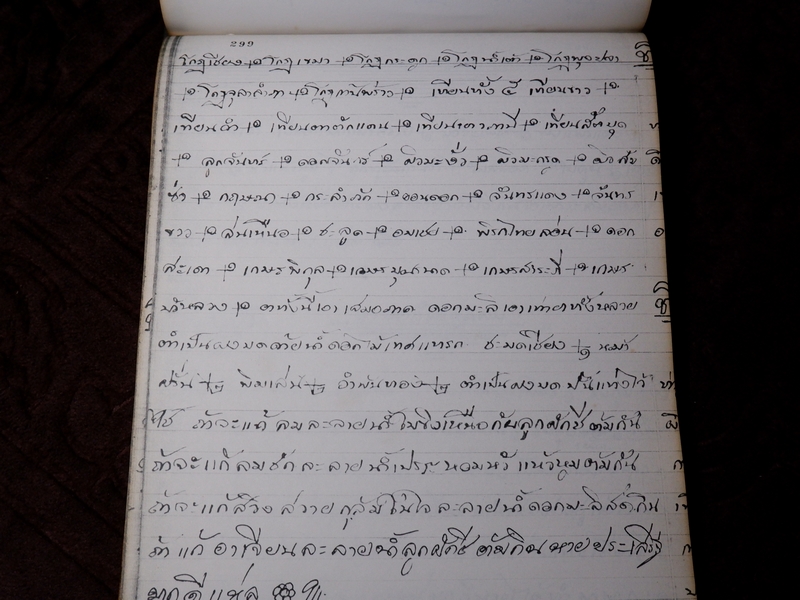 299
โกฏเชียง ๑ โกฏเขมา ๑ โกฏกะดูก ๑ โกฏน้ำเต้า ๑ โกฏพุงปลา
๑ โกฏจุลาลำภา ๑ โกฏก้านพร้าว ๑ เทียนทั้ง ๕ เทียนขาว ๑
เทียนดำ ๑ เทียนตาตักแตน ๑ เทียนเยาวภานี ๑ เทียนสัตบุด
๑ ลูกจันทร ๑ ดอกจัน ๑ ผิวมะงั่ว ๑ ผิวมะกรูด ๑ ผิวส้ม
ซ่า ๑ กฤษณา ๑ กะลำภัก ๑ ขอนดอก ๑ จันทรแดง ๑ จันทร
ขาว ๑ สนเทือ ๑ ชะลูด ๑ อบเชย ๑ พิรกไทยล่อน ๑ ดอก
สะเดา ๑ เกษรพิกุล ๑ เกษรบุนนาค ๑ เกษรสาระภี ๑ เกษร
บัวหลวง ๑ ยาทั้งนี้เอาเสมอภาค ดอกมะลิเอาเท่ายาทั้งหลาย
ทำเป็นผงบดด้วยน้ำดอกไม้เทศแทรก ชะมดเชียง
พิมเสน อำพันทอง ทำเป็นผงบดปั้นแท่งไว้
ใช้ ถ้าจะแก้ลมละลายน้ำ ลูกผักชีต้มกิน
ถ้าจะแก้ลม ละลายน้ำเปราะหอม แห้วหมูต้มกิน
ถ้าจะแก้สวิงสวายกลุ้มในใจละลายน้ำดอกมะลิสดกิน
ถ้าแก้อาเจียนละลายน้ำลูกผักชีต้มกินหายประเสริฐ
นักดีแห่ล